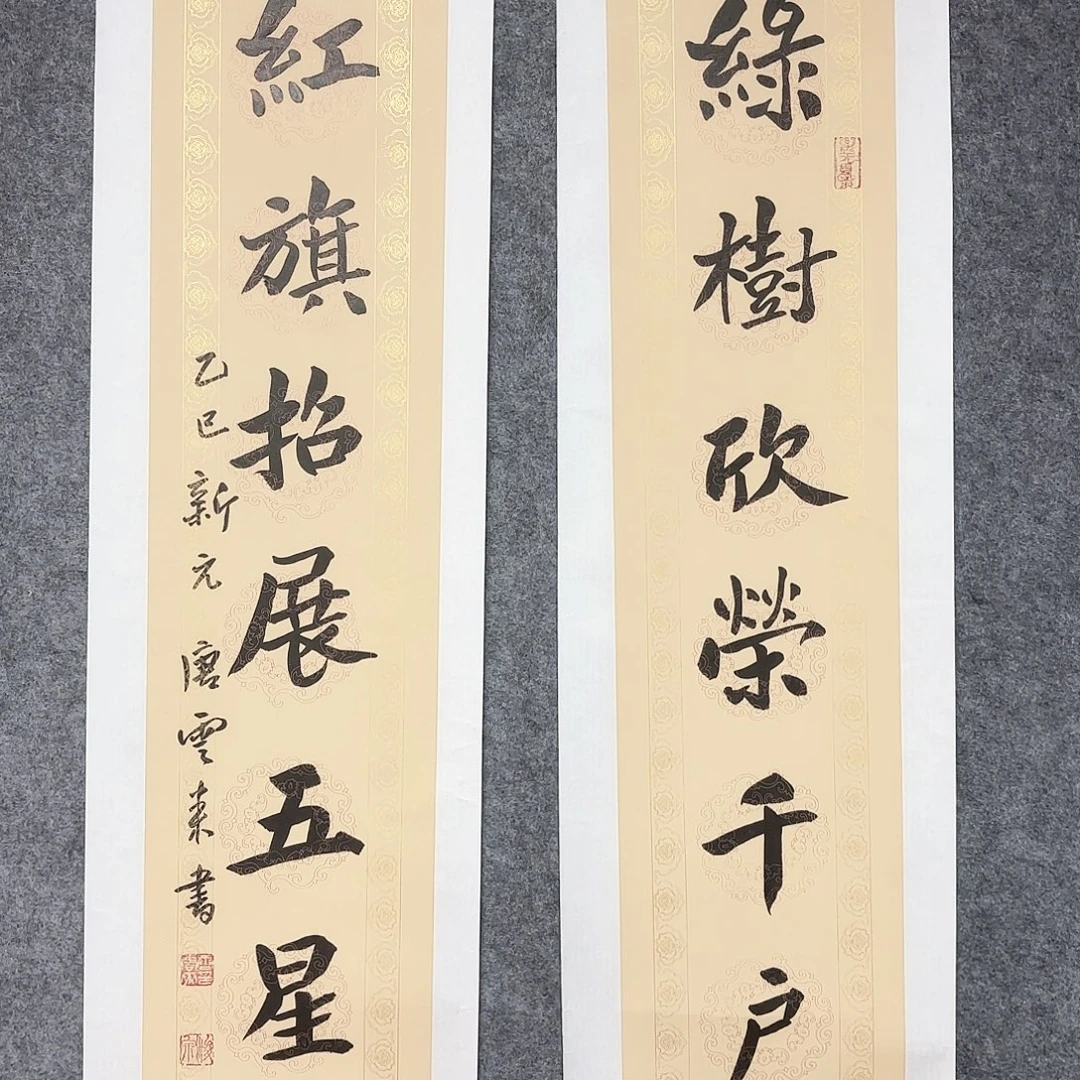 綠樹欣榮千户
紅旗招展五星
乙巳新元唐雲来書